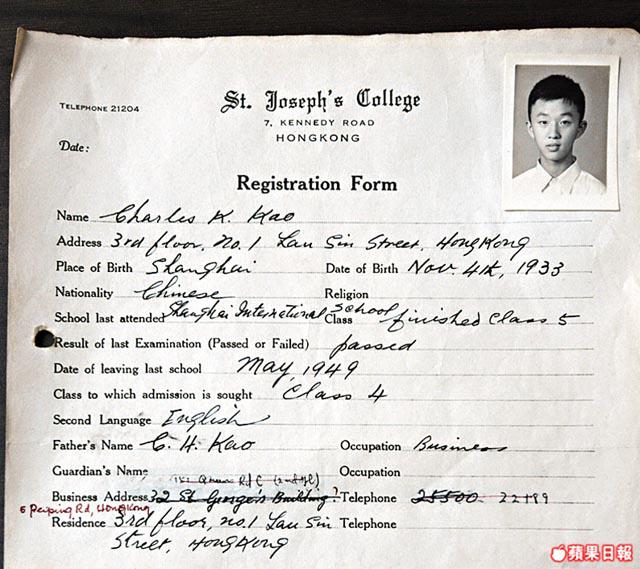 TELEPHONE 21204
St. Joseph's College
7, KENNEDY ROAD
HONGKONG
Date:
Registration Form
Name Charles K. Kao
Address 3rd floor, No. 1 Lau Sin Street, HongKong
Place of Birth Shanghai Date of Birth Nov. 4th, 1933
Nationality Chinese Religion
School last attended Shanghai International School Class finished Class 5
Result of last Examination (Passed or Failed) passed
Date of leaving last school May, 1949
Class to which admission is sought Class 4
Second Language English
Father's Name C. H. Kao Occupation Business
Guardian's Name Occupation
Business Address 32 St. George's Building Telephone 25500 22189
6 Peiping Rd, HongKong
Residence 3rd floor, No. 1 Lau Sin Telephone
Street, HongKong
蘋果日報